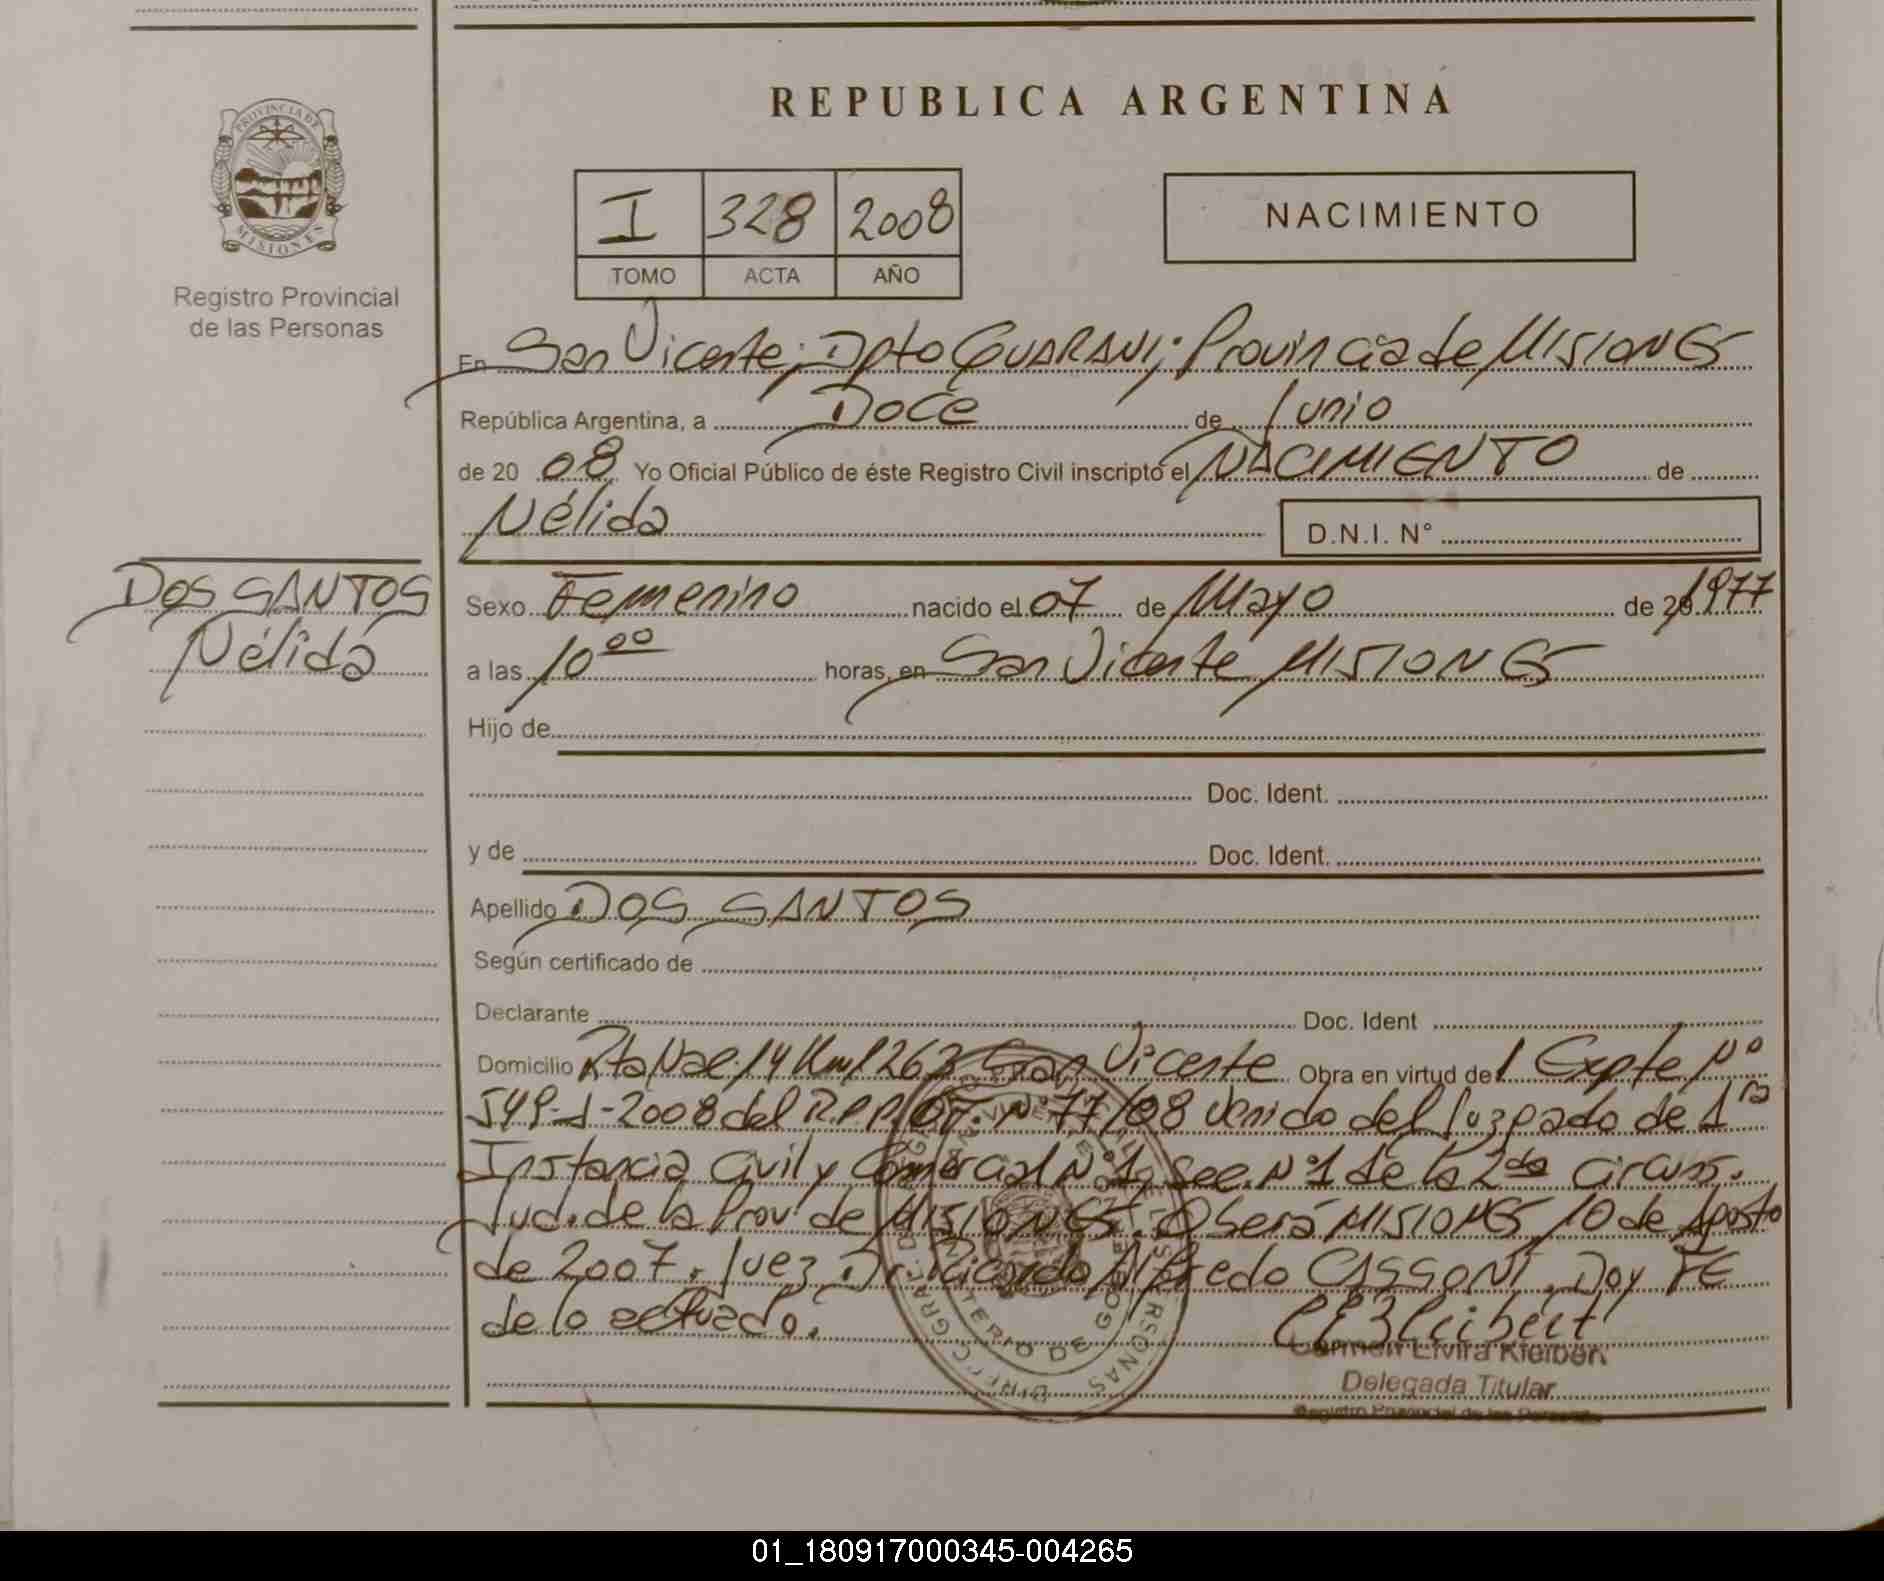 REPUBLICA ARGENTINA
PROVINCIA DE
MISIONES
Registro Provincial
de las Personas
I 328 2008
TOMO ACTA AÑO
NACIMIENTO
En San Vicente; Dpto GUARANI; Provincia de MISIONES
República Argentina, a Doce de Junio
de 20 08 Yo Oficial Público de éste Registro Civil inscripto el NACIMIENTO de
Nélida
D.N.I. N°
DOS SANTOS
Nélida
Sexo Femenino nacido el 07 de Mayo de 20 1977
a las 10 00 horas, en San Vicente MISIONES
Hijo de
Doc. Ident.
y de Doc. Ident.
Apellido DOS SANTOS
Según certificado de
Declarante Doc. Ident
Domicilio Rta Nac. 14 Km 1263 San Vicente Obra en virtud de Expte Nº
-2008 del R.P.P. Of. Nº 77/08 venido del Juzgado de 1ra
Instancia Civil y Comercial Nº1, Sec. Nº1 de la 2da circuns.
Jud. de la Prov. de MISIONES. Oberá MISIONES, 10 de Agosto
de 2007. Juez Dr. Ricardo Alfredo CASSONI. Doy FE
de lo actuado.
Carmen Elvira
Delegada Titular
Registro Provincial de las Personas
01_180917000345-004265